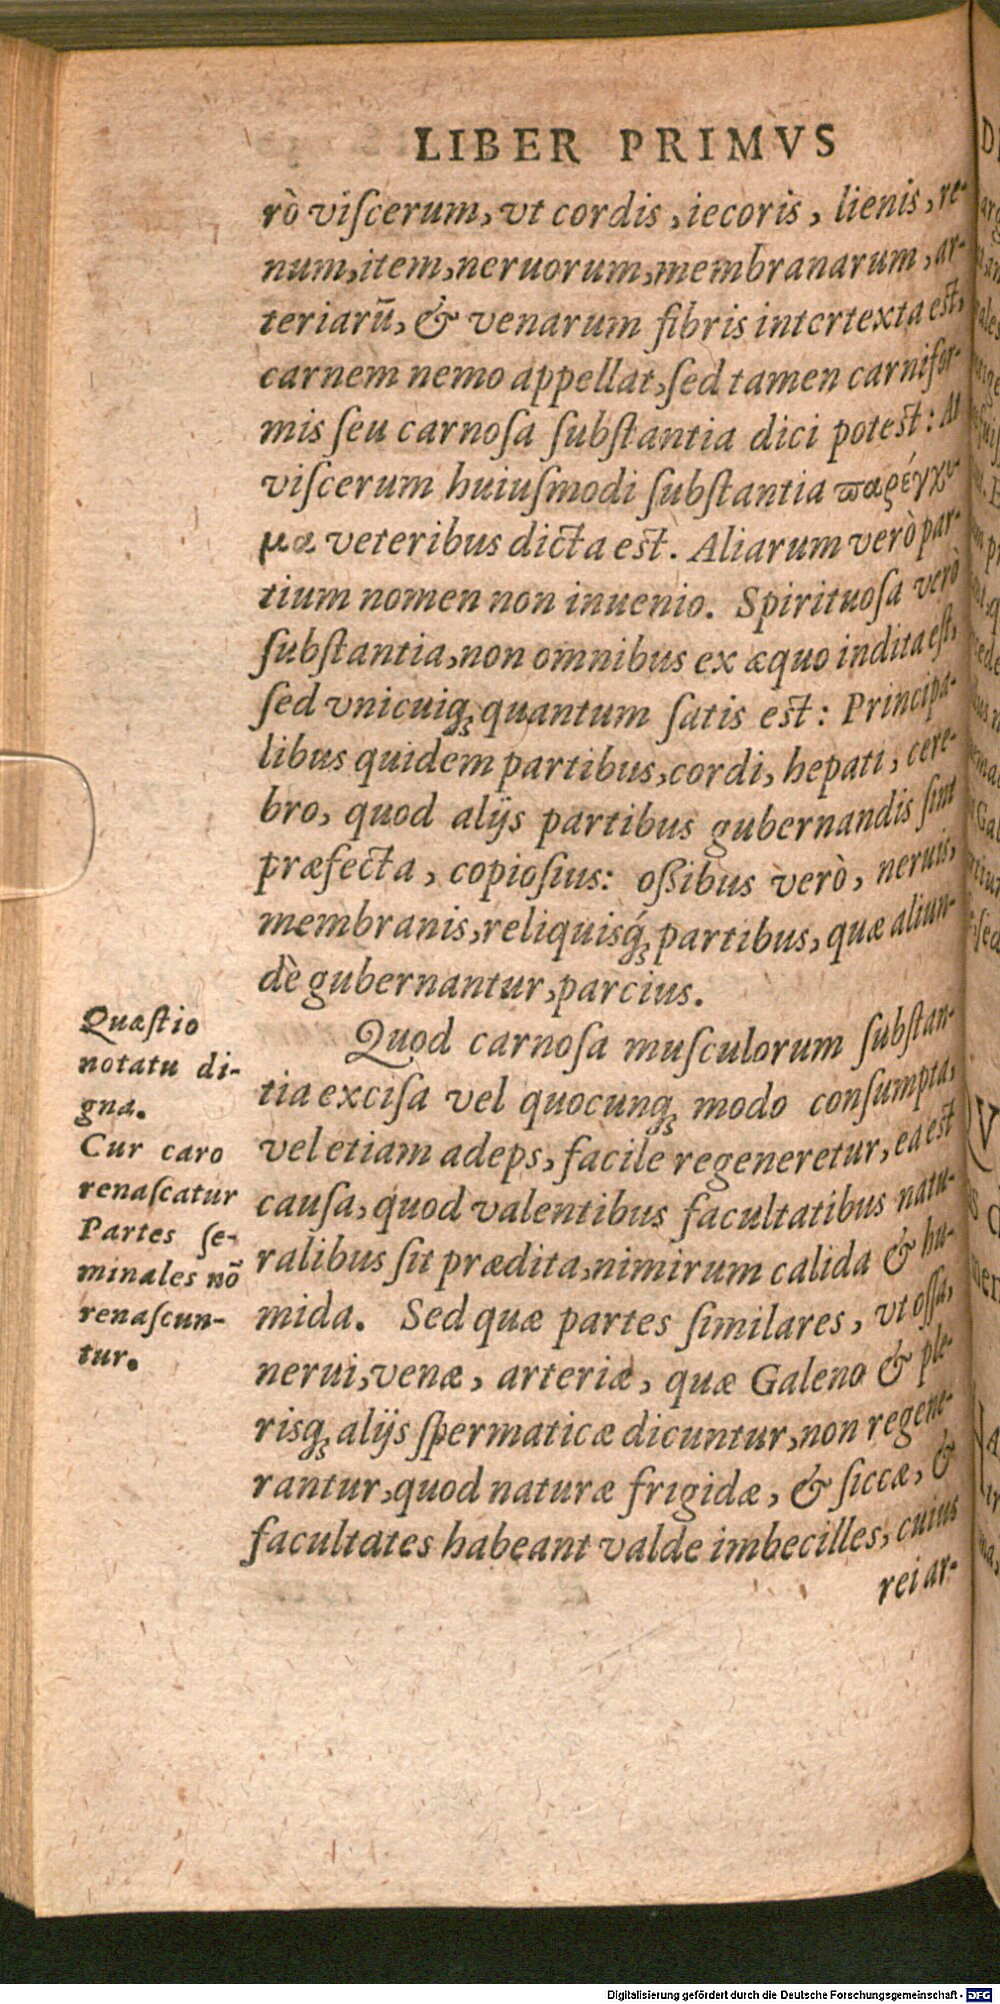 LIBER PRIMVS
rò viſcerum, vt cordis, iecoris, lienis, re-
num, item, neruorum, membranarum, ar-
teriarū, & venarum fibris intertexta est,
carnem nemo appellat, ſed tamen carnifor-
mis ſeu carnoſa ſubſtantia dici potest: At
viſcerum huiuſmodi ſubſtantia ϖαρέγχυ-
μα veteribus dicta est. Aliarum verò par-
tium nomen non inuenio. Spirituoſa verò
ſubſtantia, non omnibus ex æquo indita eſt,
ſed vnicuiq; quantum ſatis est: Principa-
libus quidem partibus, cordi, hepati, cere-
bro, quod alijs partibus gubernandis ſint
præfecta, copioſius: oßibus verò, neruis,
membranis, reliquisq́; partibus, quæ aliun-
dè gubernantur, parcius.
Quæſtio
notatu di-
gna.
Cur caro
renaſcatur
Partes ſe-
minales nō
renaſcun-
tur.
Quod carnoſa muſculorum ſubſtan-
tia exciſa vel quocunq; modo conſumpta,
vel etiam adeps, facile regeneretur, ea est
cauſa, quod valentibus facultatibus natu-
ralibus ſit prædita, nimirum calida & hu-
mida. Sed quæ partes ſimilares, vt oſſa,
nerui, venæ, arteriæ, quæ Galeno & ple-
risq; alijs ſpermaticæ dicuntur, non regene-
rantur, quod naturæ frigidæ, & ſiccæ, &
facultates habeant valde imbecilles, cuius
rei ar-
Digitalisierung gefördert durch die Deutsche Forschungsgemeinschaft - DFG